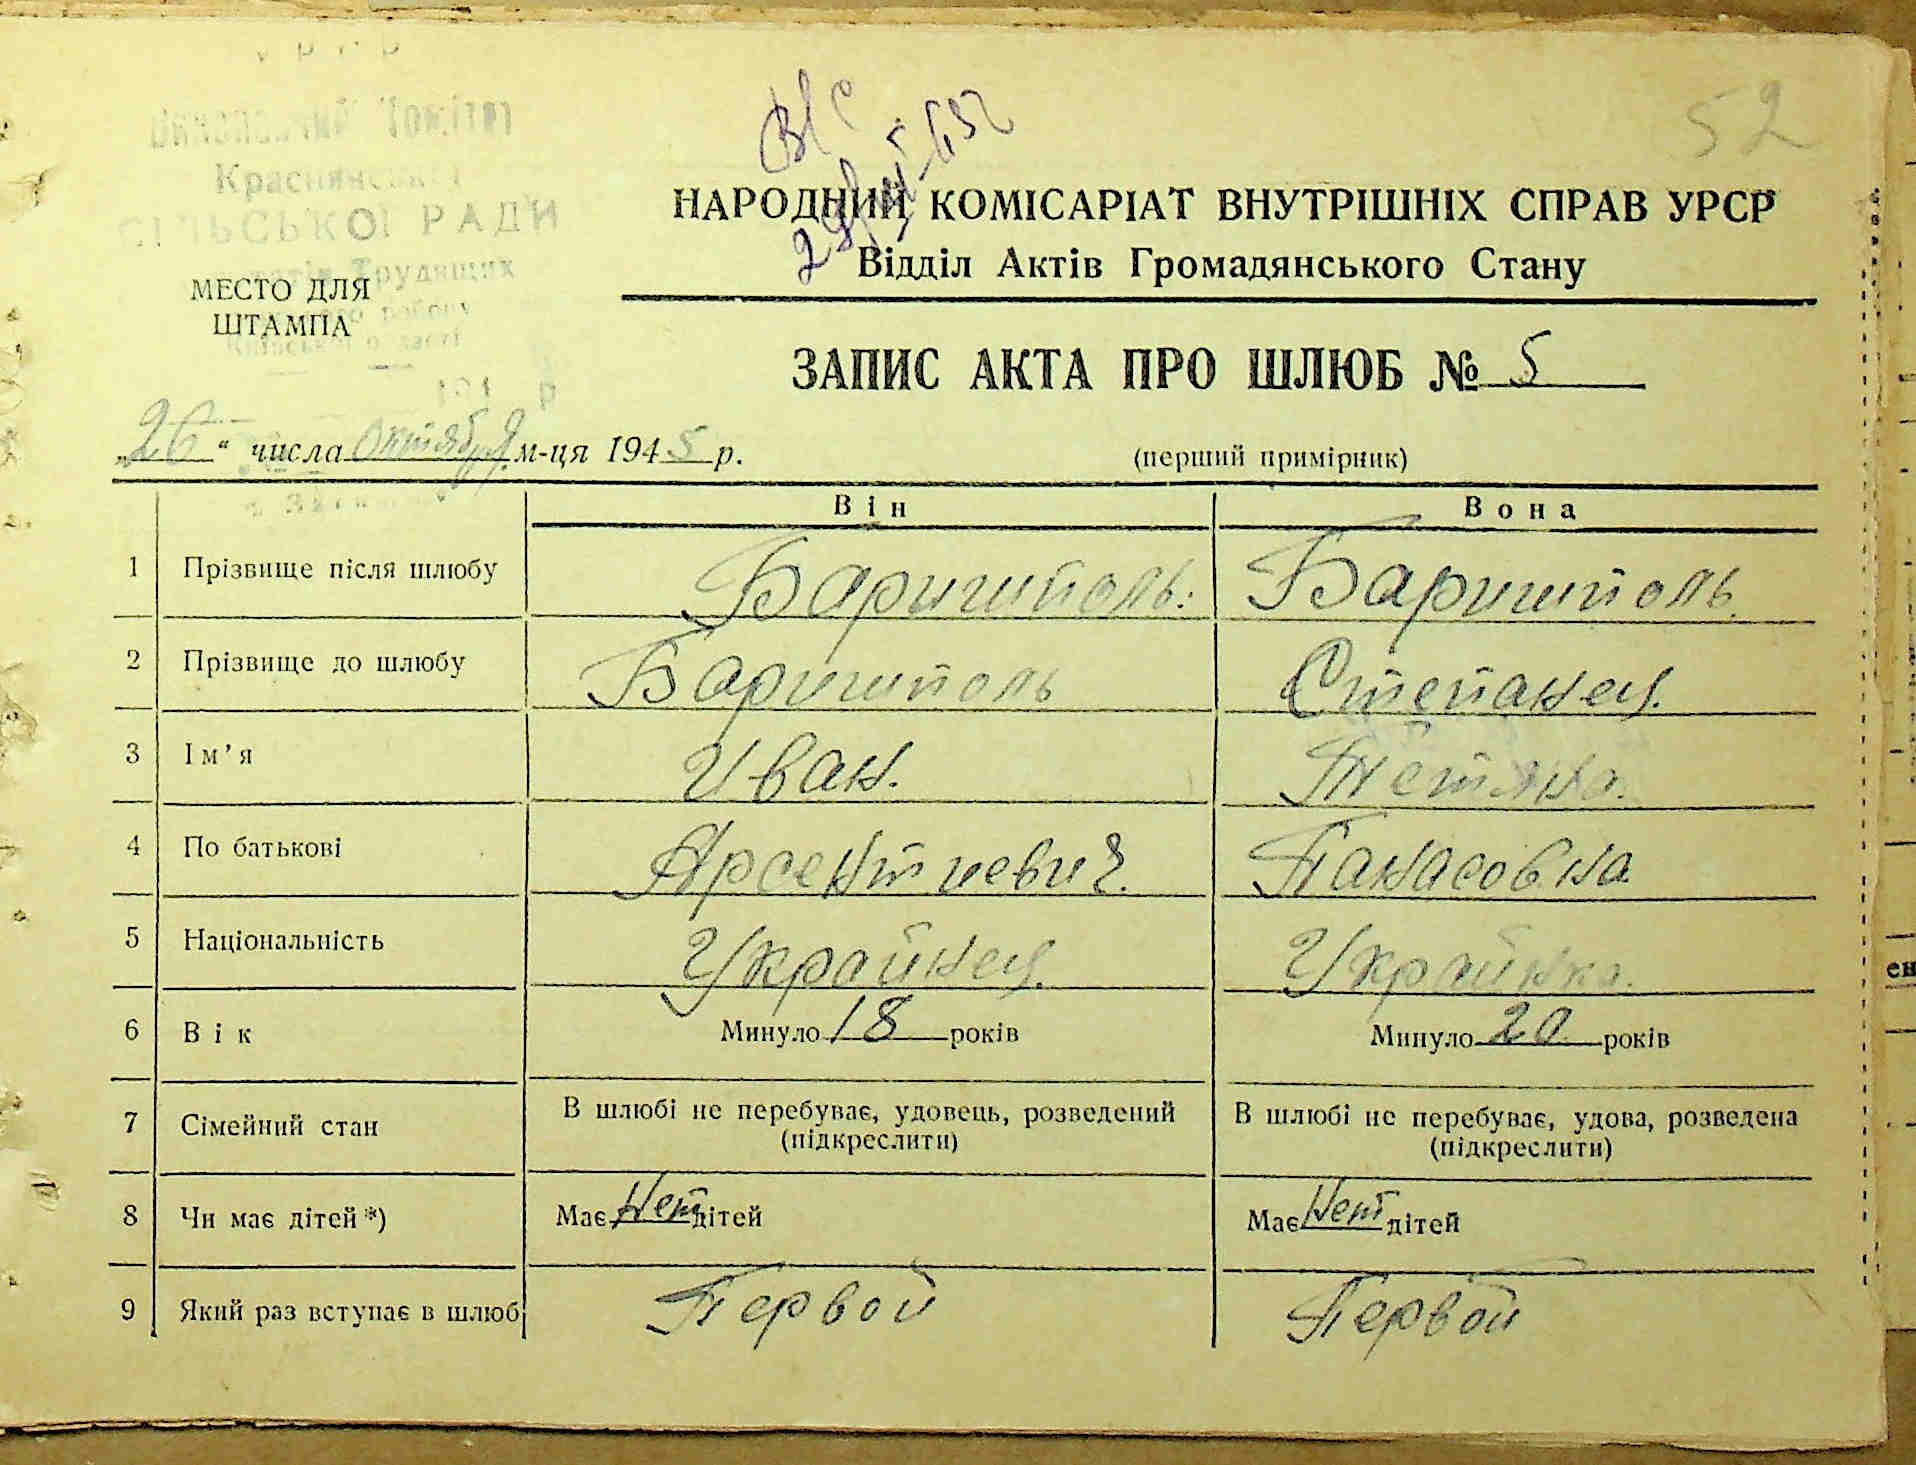 52
Краснянської
СІЛЬСЬКОЇ РАДИ
Трудящих
МЕСТО ДЛЯ
ШТАМПА
НАРОДНИЙ КОМІСАРІАТ ВНУТРІШНІХ СПРАВ УРСР
Відділ Актів Громадянського Стану
ЗАПИС АКТА ПРО ШЛЮБ № 5
„26“ числа Октября м-ця 1945 р.
(перший примірник)
Він Вона
1 Прізвище після шлюбу Баришполь. Баришполь.
2 Прізвище до шлюбу Баришполь Степанец.
3 Ім'я Иван. Тетяна.
4 По батькові Арсентиевич. Панасовна
5 Національність Украйнец. Украйнка.
6 Вік Минуло 18 років Минуло 20 років
7 Сімейний стан В шлюбі не перебуває, удовець, розведений В шлюбі не перебуває, удова, розведена
(підкреслити) (підкреслити)
8 Чи має дітей*) Має Нет дітей Має Нет дітей
9 Який раз вступає в шлюб Первой Первой